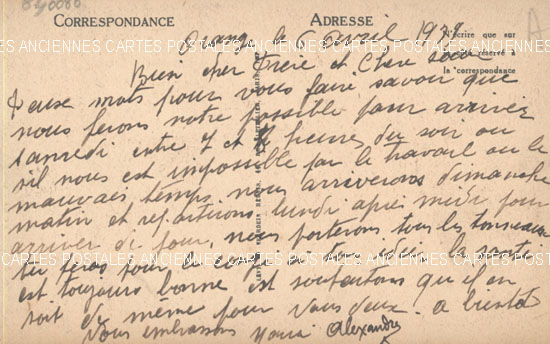 840080
CORRESPONDANCE ADRESSE
Orange le 6 Avril 1939
N'écrire que sur
réservé à
la correspondance
ANCIENNES CARTES POSTALES ANCIENNES CARTES POSTALES ANCIENNES CARTES POSTALES
Bien cher Frère et Chère
Deux mots pour vous faire savoir que
nous ferons notre possible pour arriver
samedi entre 7 et 8 heures du soir ou
s'il nous est impossible par le travail ou le
mauvais temps nous arriverons dimanche
matin et repartirons lundi après midi pour
arriver de jour, nous porterons tous les tonneaux
tu feras pour le mieux la santé
CARTES POSTALES ANCIENNES CARTES POSTALES ANCIENNES CARTES POSTALES
est toujours bonne et souhaitons qu'il en
soit de même pour vous deux. a bientôt
Vous embrassons Alexandre